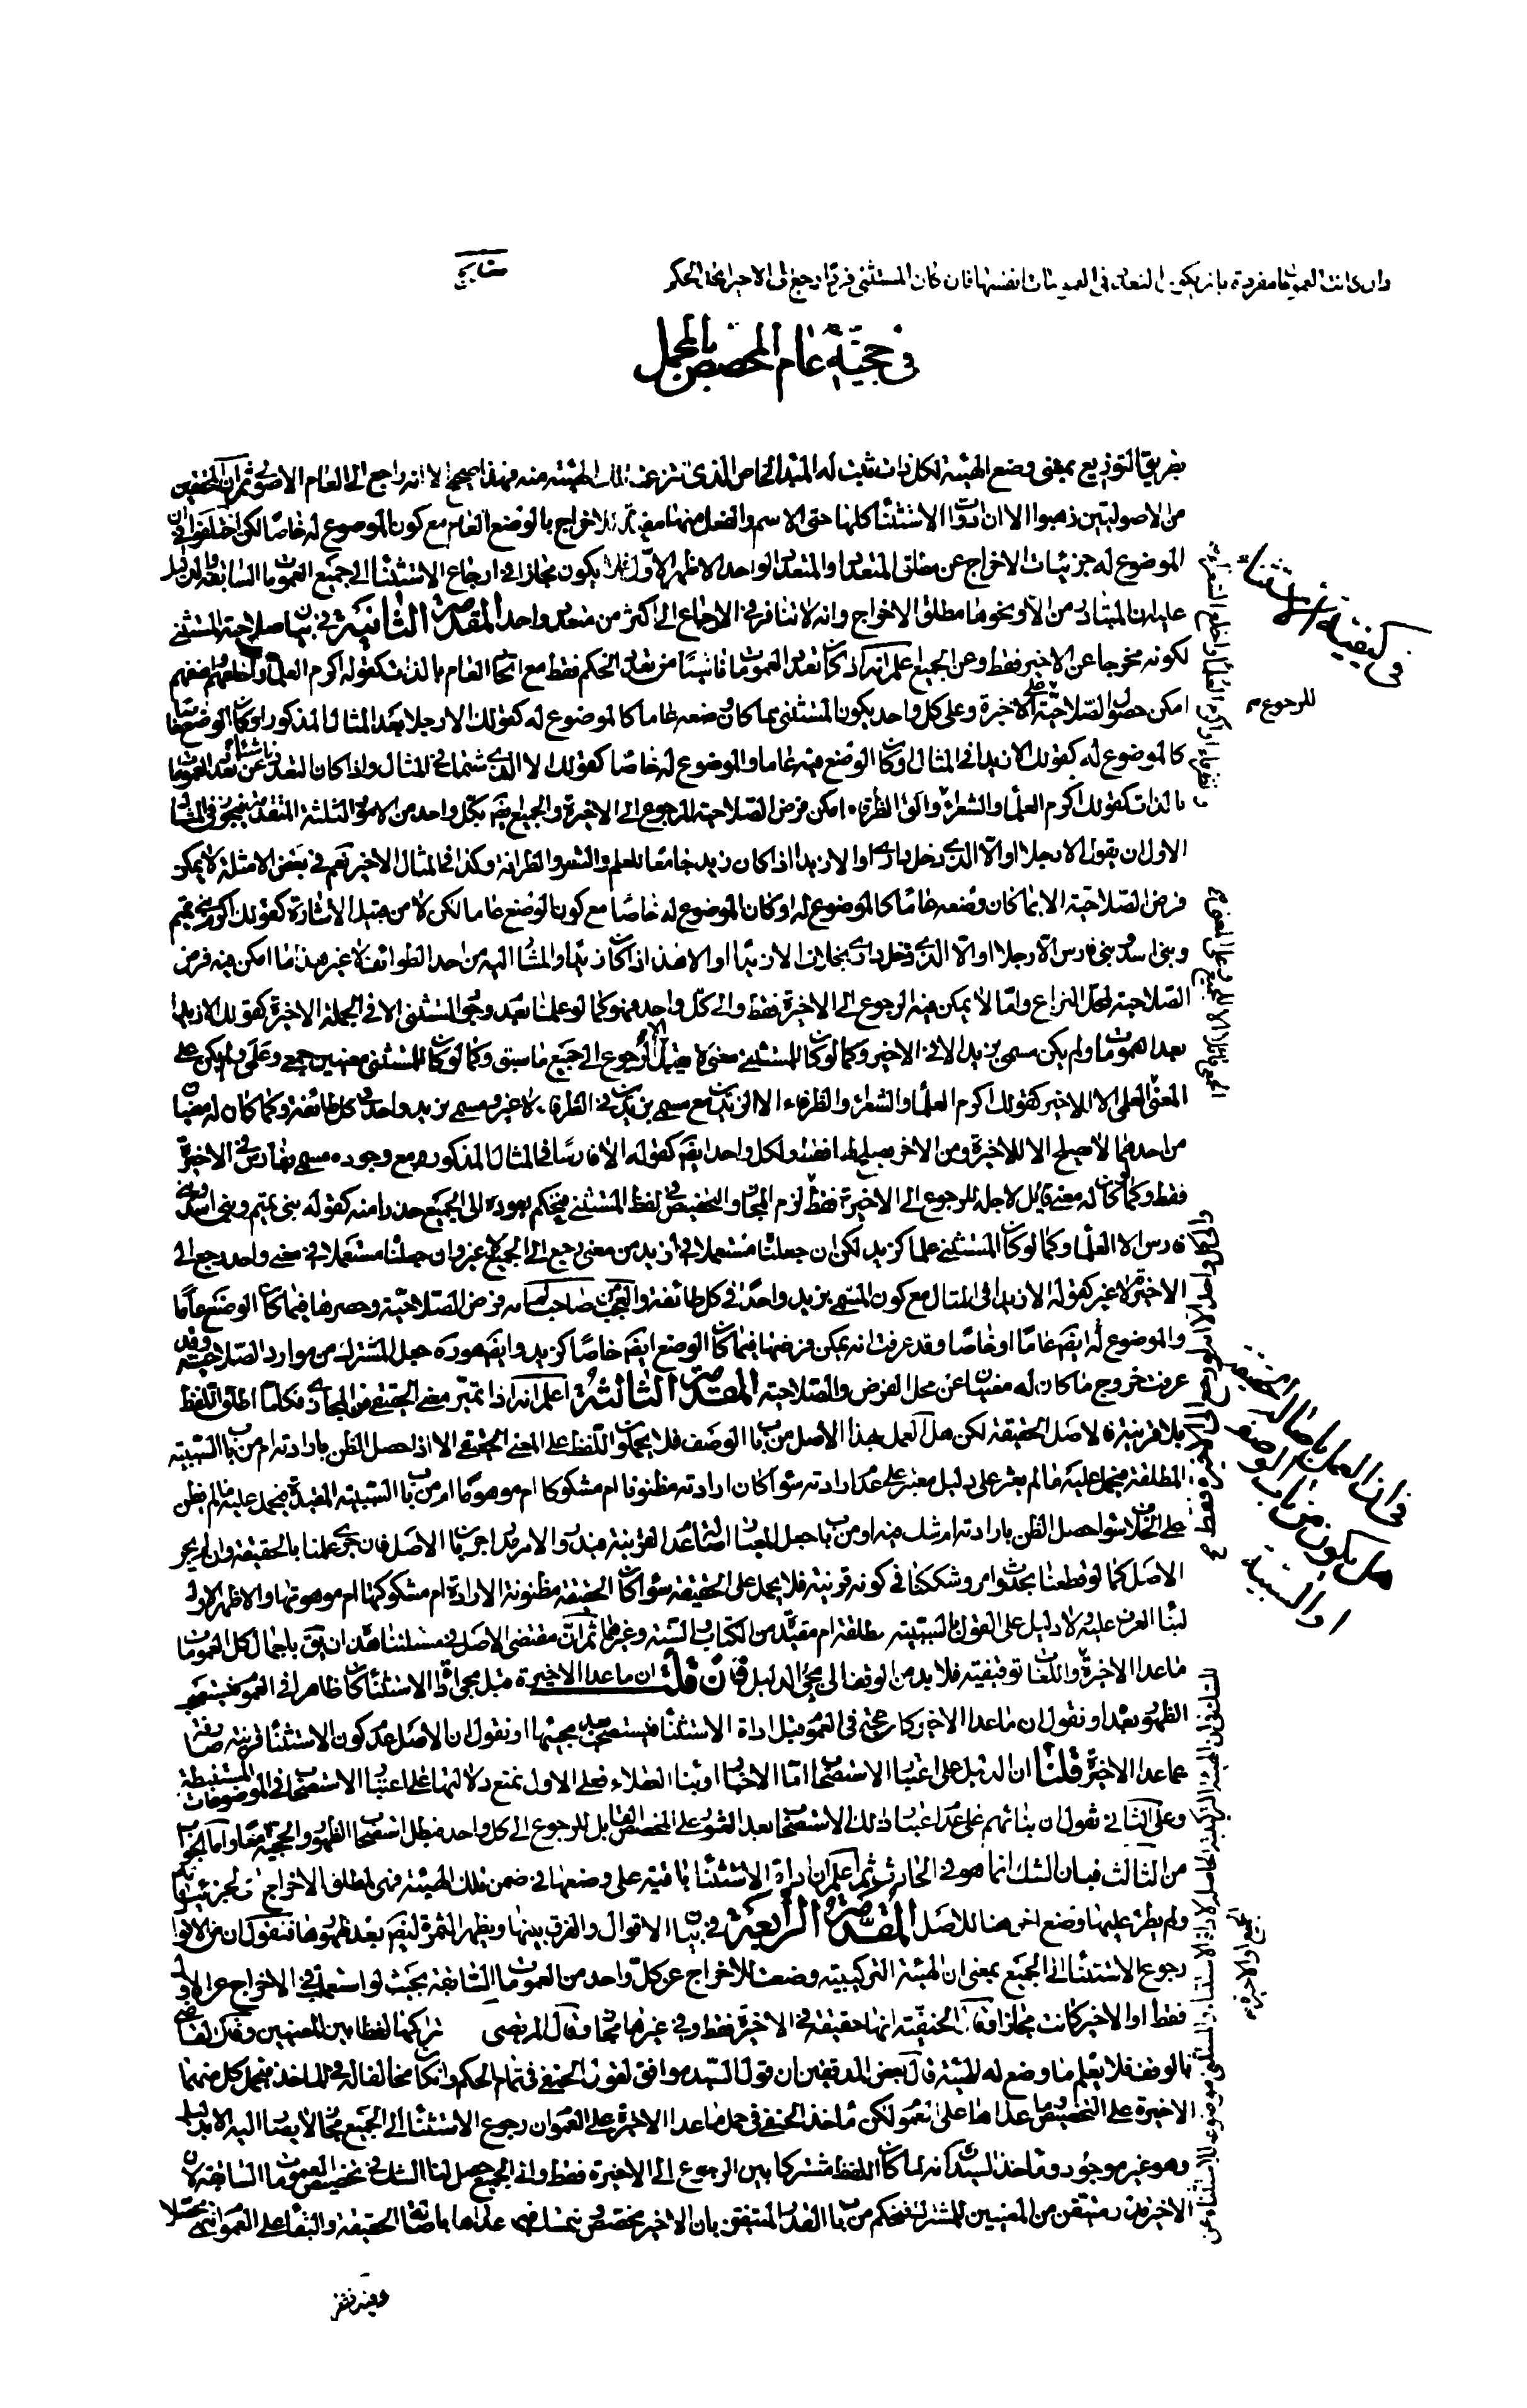 وان كانت العمومات مفردة بان يكون التعدد في العمومات انفسها فان كان المستثنى فردا رجع الى الاخير اتحد الحكم
في حجية عام المخصص بالمجمل
بطريق التوزيع بمعنى وضع الهيئة لكل ذات ثبت له المبدا الخاص الذى تنزع تلك الهيئة منه فهذا صحيح لا انه راجع الى العام الاصولى ثم ان المحققين
من الاصوليين ذهبوا الا ان ادوات الاستثناء كلها حتى الاسم والفعل منها مفيدة للاخراج بالوضع العام مع كون الموضوع له خاصا لكن اختلفوا في ان
الموضوع له جزئيات الاخراج عن مطلق المتعدد او المتعدد الواحد الاظهر الاول فلا يكون مجازا في ارجاع الاستثناء الى جميع العمومات السابقة لنا
عليه ان المتبادر من الا ونحوها مطلق الاخراج وانه لا تنافر في الارجاع الى اكثر من متعدد واحد المقدمة الثانية في بيان صلاحية المستثنى
لكونه مخرجا عن الاخير فقط وعن الجميع اعلم انه اذا كان تعدد العمومات ناشئا من تعدد الحكم فقط مع اتحاد العام بالذات كقوله اكرم العلماء واخلعهم واضفهم
امكن حصول الصلاحية على الاخيرة وعلى كل واحد بكون المستثنى مما كان وضعه عاما كالموضوع له كقولك الا رجلا بعد المثال المذكور او كان الوضع خاصا
كالموضوع له كقولك الا زيدا في المثال او كان الوضع فيه عاما والموضوع له خاصا كقولك الا الذى شتمك في المثال واذا كان التعدد ناشئا عن تعدد العمومات
بالذات كقولك اكرم العلماء والشعراء والق الظرفاء امكن فرض الصلاحية للرجوع الى الاخيرة والجميع ايضا بكل واحد من الامور الثلثة المتقدمة فيجوز في المثال
الاول ان يقول الا رجلا او الا الذى دخل دارى او الا زيدا اذا كان زيد جامعا للعلم والشعر والظرافة وكذا في المثال الاخير نعم في بعض الامثلة لا يمكن
فرض الصلاحية الا بما كان وضعه عاما كالموضوع له او كان الموضوع له خاصا مع كون الوضع عاما لكن لا من قبيل الاشارة كقولك اكرم بنى تميم
وبنى اسد وبنى فارس الا رجلا او الا الذى دخل دارى بخلاف الا زيدا او الا هذا اذا كان زيد والمشار اليه من احد الطوائف لا غير هذا ما امكن فيه فرض
الصلاحية لمحل النزاع واما لا يمكن فيه الرجوع الى الاخيرة فقط والى كل واحد فهو كما لو علمنا بعدم وجود المستثنى الا في الجملة الاخيرة كقولك الا زيدا
بعد العمومات ولم يكن مسمى بزيد الا في الاخير وكما لو كان للمستثنى معنى لا يقبل الا الرجوع الى جميع ما سبق وكما لو كان للمستثنى معنيين جمعى وعلمى ولم يكن على
المعنى العلمى الا للاخير كقولك اكرم العلماء والشعراء والظرفاء الا الزيدين مع مسمى بزيدين في الظرفاء لا غير ومسمى بزيد واحد في كل طائفة وكما كان له معنيان
من احدهما لا يصلح الا للاخيرة ومن الاخر يصلح لها فقط ولكل واحد ايضا كقوله الا فارسا في المثال المذكور مع وجود مسمى بفارس في الاخيرة
فقط وكما لو كان له معنى قابل لاجله للرجوع الى الاخيرة فقط لزم المجاز والتخصيص في لفظ المستثنى فيحكم بعوده الى الجميع حذرا منه كقوله بنى تميم وبنى اسد وبنى
فارس الا العلماء وكما لو كان المستثنى علما كزيد لكن ان جعلنا مستعملا في ازيد من معنى رجع الى الجميع لا غير وان جعلنا مستعملا في معنى واحد رجع الى
الاخيرة لا غير كقوله الا زيدا في المثال مع كون المسمى بزيد واحدا في كل طائفة والعجب من صاحب المعالم فرض الصلاحية وحصرها فيما كان الوضع عاما
والموضوع له ايضا عاما او خاصا وقد عرفت انه يمكن فرضها فيما كان الوضع ايضا خاصا كزيد وايضا هو ره جعل المشترك من موارد الصلاحية وقد
عرفت خروج ما كان له معنيان عن محل الفرض والصلاحية المقدمة الثالثة اعلم انه اذا تميز معنى الحقيقى من المجازى فكلما اطلق اللفظ
بلا قرينة فالاصل الحقيقة لكن هل العمل بهذا الاصل من باب الوصف فلا يحملون اللفظ على المعنى الحقيقى الا اذا حصل الظن بارادته ام من باب السببية
المطلقة فيحمل عليه ما لم يعثر على دليل معتبر على عدم ارادته سواء كان ارادته مظنونا ام مشكوكا ام موهوما ام من باب السببية المقيدة فيحمل عليه ما لم يظن
على الخلاف سواء حصل الظن بارادته ام شك فيه او من باب جعل المعيار اصالة عدم القرينة فيدور الامر مدار جريان الاصل فان جرى عملنا بالحقيقة وان لم يجر
الاصل كما لو قطعنا بحدوث امر وشككنا في كونه قرينة فلا يحمل على الحقيقة سواء كان الحقيقة مظنونة الارادة ام مشكوكها ام موهومها والاظهر الاول
لبناء العرف عليه ولا دليل على القول بالسببية مطلقة ام مقيدة من الكتاب والسنة وغيرهما ثم ان مقتضى الاصل في مسئلتنا هذه ان يق باجمال كل العمومات
ما عدا الاخيرة واللغات توقيفية فلا بد من الوقف الى مجئ الدليل فان قلت ان ما عدا الاخيرة قبل مجئ اداة الاستثناء كان ظاهرا في العموم فيستصحب
الظهور بعده او نقول ان ما عدا الاخيرة كان حجة في العموم قبل اداة الاستثناء فيستصحب بعد مجيئها او نقول ان الاصل عدم كون الاستثناء قرينة صارفة
عما عدا الاخيرة قلنا ان الدليل على اعتبار الاستصحاب اما الاخبار او بناء العقلاء فعلى الاول نمنع دلالتها على اعتبار الاستصحاب في الموضوعات المستنبطة
وعلى الثانى نقول ان بنائهم على عدم اعتبار ذلك الاستصحاب بعد العثور على المخصص القابل للرجوع الى كل واحد فبطل استصحاب الظهور والحجية معا واما الجواب
من الثالث فبان الشك انما هو في الحادث ثم اعلم ان اداة الاستثناء باقية على وضعها في ضمن تلك الهيئة فهى لمطلق الاخراج
ولم يطرء عليها وضع اخر هنا للاصل المقدمة الرابعة في بيان الاقوال والفرق بينها ويظهر الثمرة ايضا بعد ظهورها فنقول ان من الاقوال
رجوع الاستثناء الى الجميع بمعنى ان الهيئة التركيبية وضعت للاخراج عن كل واحد من العمومات السابقة بحيث لو استعملت في الاخراج عن الاول
فقط او الاخير كانت مجازا وقال الحنفية انها حقيقة في الاخيرة فقط وفي غيرها مجاز وقال المرتضى باشتراكها لفظا بين المعنيين وقال
بالوقف فلا يعلم ما وضع له الهيئة قال بعض المدققين ان قول السيد موافق لقول الحنفى في تمام الحكم وان كان مخالفا له في الماخذ فيحمل كل منهما
الاخيرة على التخصيص وما عداها على العموم لكن ماخذ الحنفى في حمل ما عدا الاخيرة على العموم ان رجوع الاستثناء الى الجميع مجاز لا يصار اليه الا بدليل
وهو غير موجود وماخذ السيد انه لما كان اللفظ مشتركا بين الرجوع الى الاخيرة فقط والى الجميع حصل لنا الشك في تخصيص العمومات السابقة لان
الاخيرة قدر متيقن من المعنيين للمشترك فنحكم من باب القدر المتيقن بان الاخير مخصص ونتمسك فيما عداها باصالة الحقيقة والبقاء على العموم انتهى
وفيه نظر
في كيفية الاستثناء
للرجوع
في ان العمل باصالة الحقيقة
هل يكون من باب الوصف
او السببية